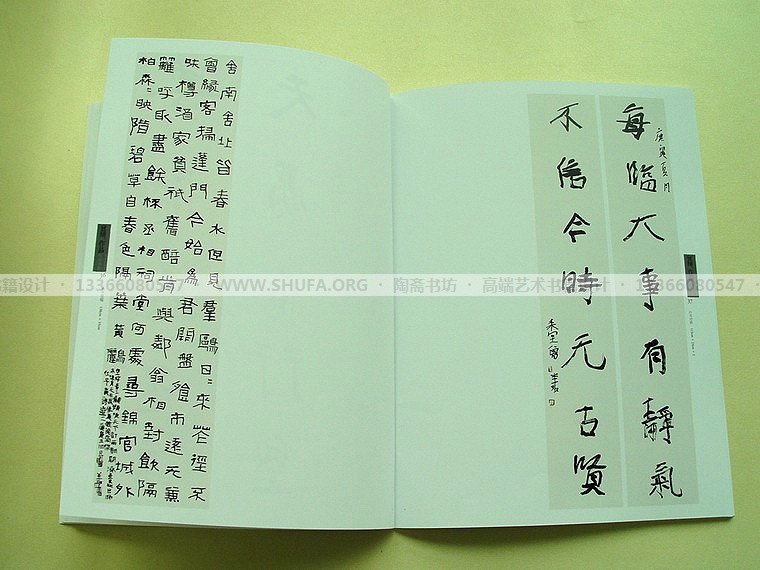 庚寅夏月
每臨大事有靜氣
不信今時无古賢
舍南舍北皆春水但見羣鷗日〻來花徑不
曾緣客掃蓬門今始為君開盤飧市遠无兼
味樽酒家貧祇舊醅肯與鄰翁相對飲隔
籬呼取盡餘杯丞相祠堂何處尋錦官城外
柏森〻映階碧草自春色隔葉黃鸝
籍设计 · 13366080547 · WWW.SHUFA.ORG · 陶斋书坊 · 高端艺术书籍设计 · 13366080547 ·